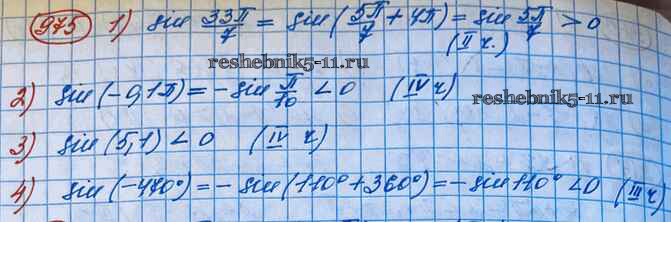 975 1) sin 33π/7 = sin(5π/7 + 4π) = sin 5π/7 > 0
(II ч.)
reshebnik5-11.ru
2) sin(-0,1π) = -sin π/10 < 0 (IV ч)
reshebnik5-11.ru
3) sin(5,1) < 0 (IV ч)
4) sin(-470°) = -sin(110° + 360°) = -sin 110° < 0 (III ч)